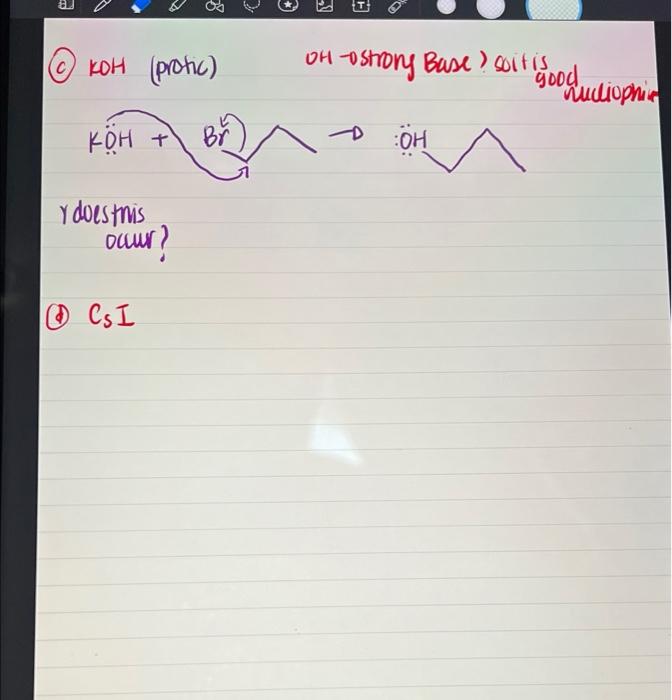 C KOH (protic) OH → strong Base } so it is good nucliophile
KÖH + Br → :ÖH
Y does this
occur?
d CsI